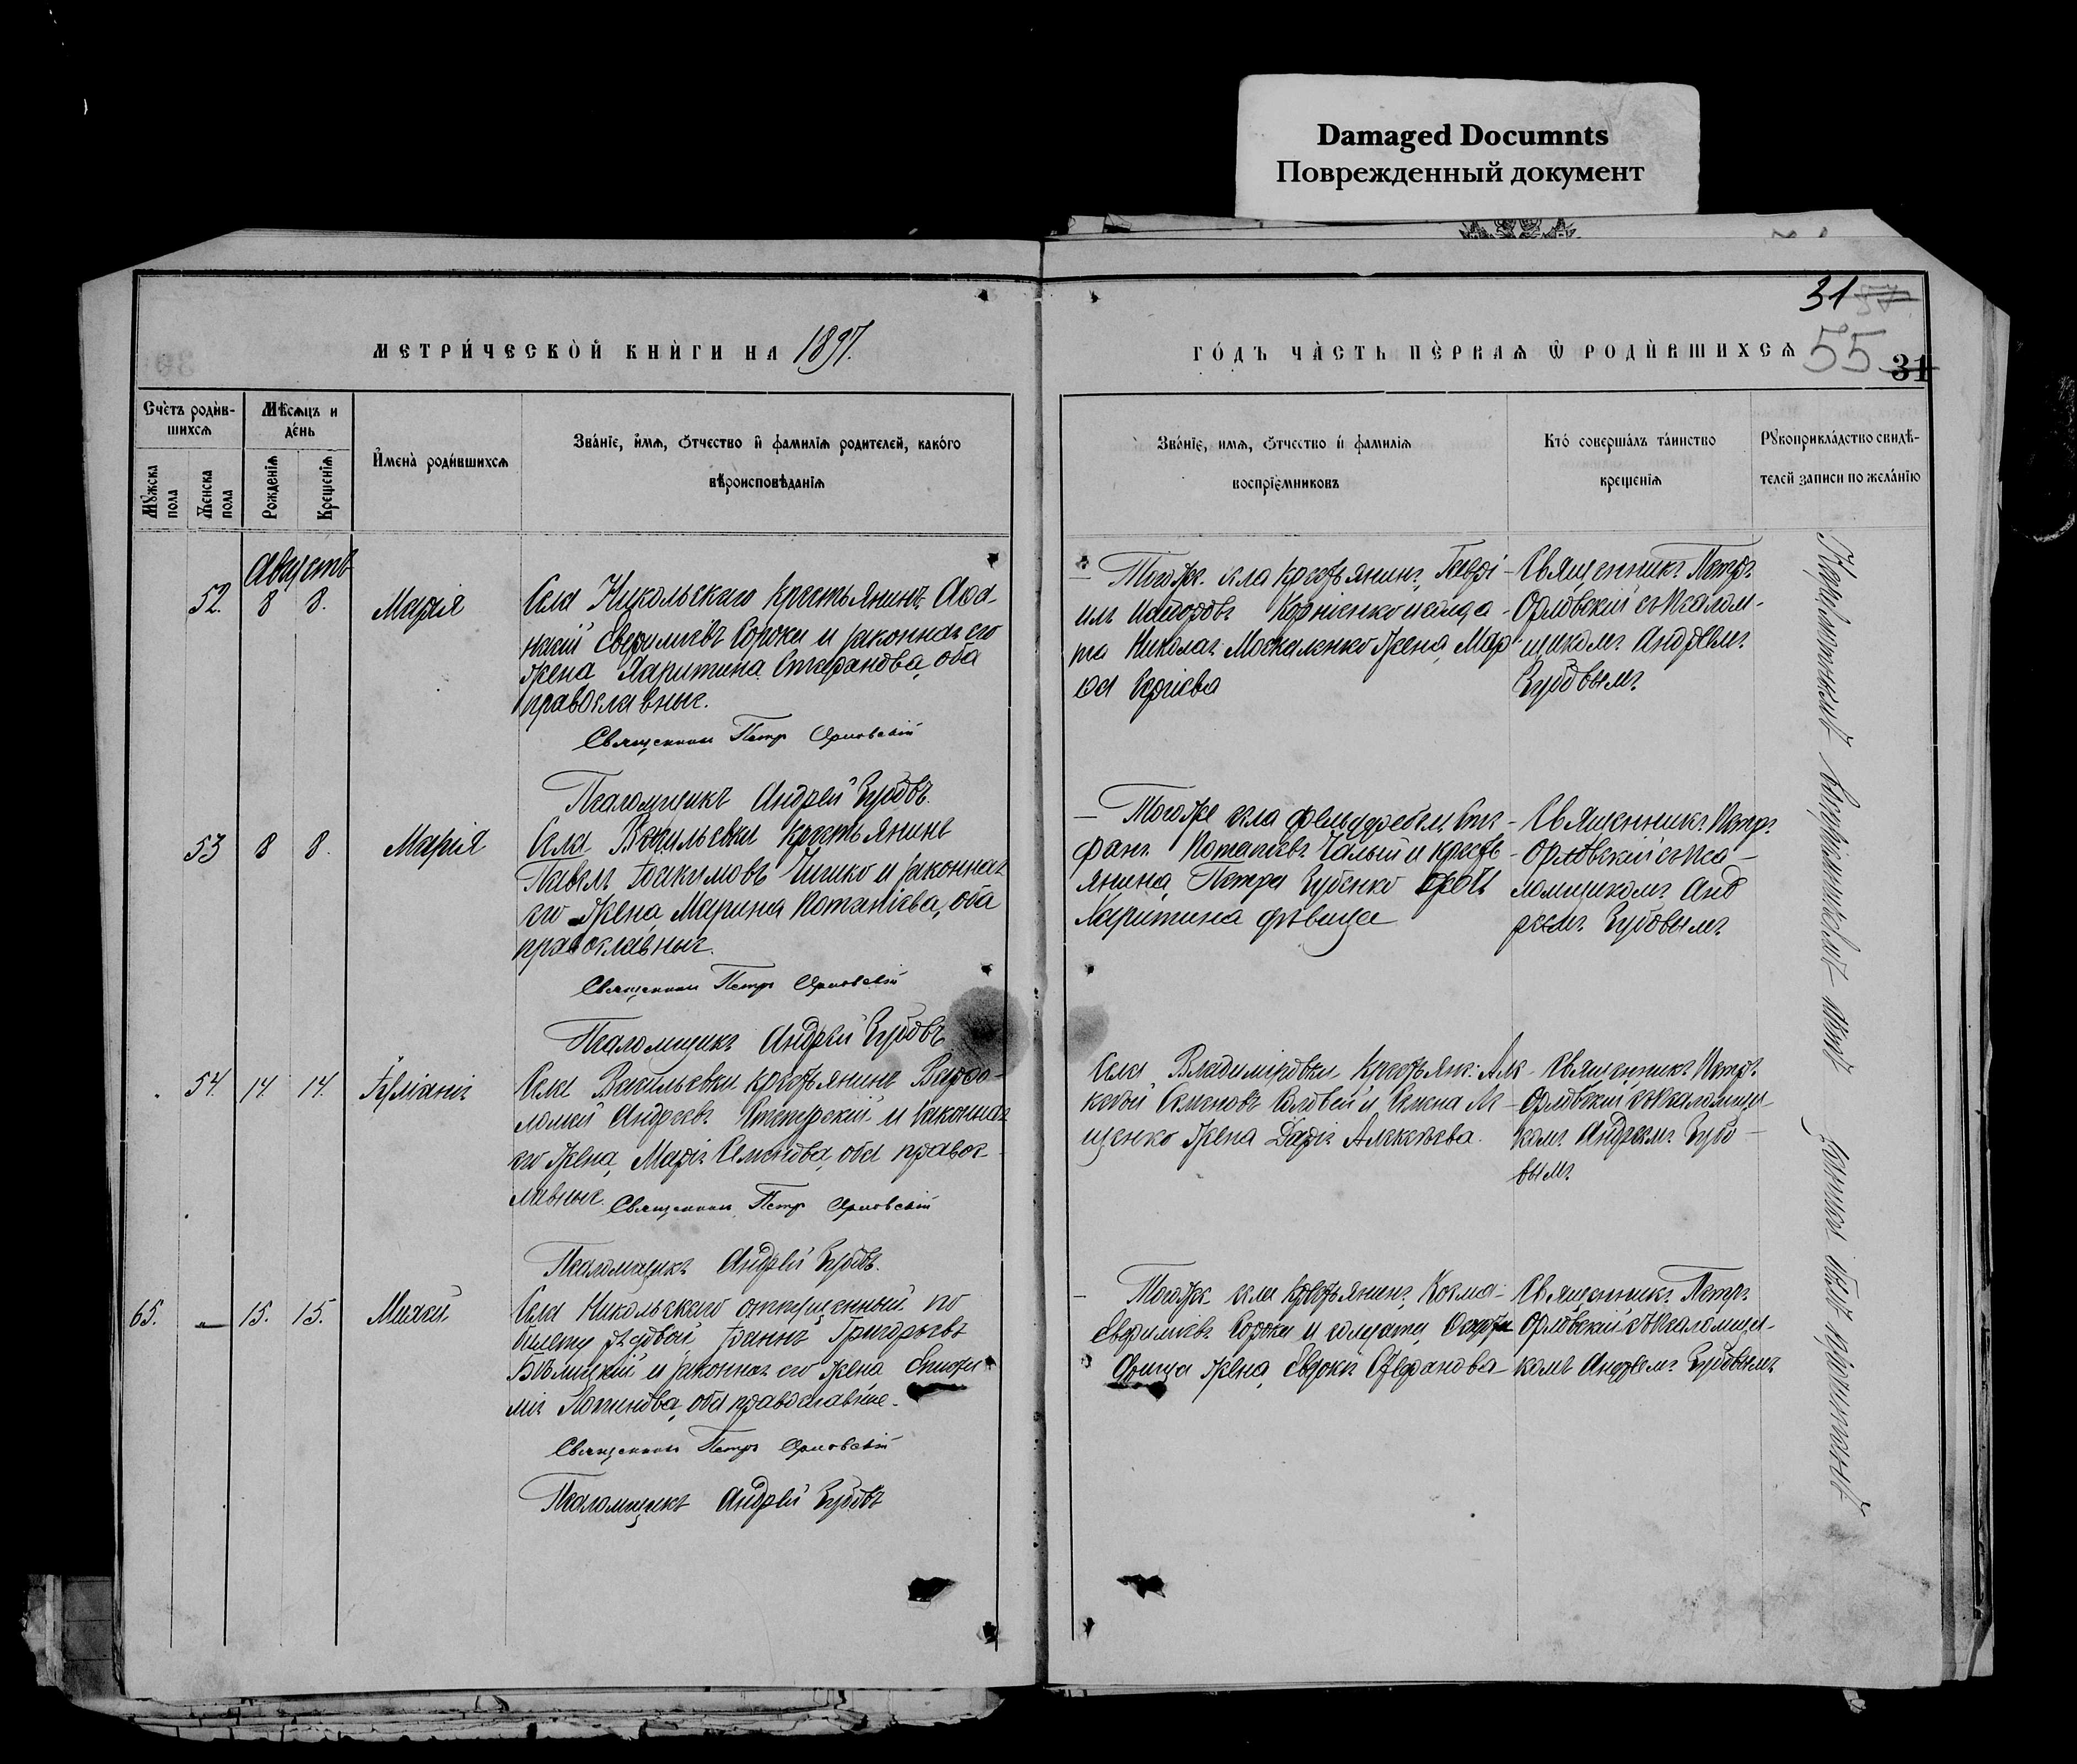 Damaged Documnts
Поврежденный документ
31 57
55
31
МЕТРИ́ЧЕСКОЙ КНИ́ГИ НА 1897.
ГО́ДЪ ЧА́СТЬ ПЕ́РВАѦ Ѡ РОДИ́ВШИХСѦ
Сче́тъ роди́в-
шихсѧ
Мѣ́сѧцъ и
де́нь
И҆мена̀ роди́вшихсѧ
Зва́нїе, и҆́мѧ, Ѻ҆́тчество и҆ фамилїѧ родителей, како́го
вѣроисповѣ́данїѧ
Мꙋ́жска
пола
Же́нска
пола
Рожде́нїѧ
Креще́нїѧ
Зва́нїе, имѧ, Ѻ҆́тчество и҆ фамилїѧ
воспрїе́мниковъ
Кто́ соверша́лъ та́инство
креще́нїѧ
Рꙋкоприкла́дство свидѣ́-
телей записи по жела́нїю
Августъ
52. 8 8. Марія
Села Никольскаго крестьянинъ Аѳа-
насій Евфиміевъ Сорока и законная его
жена Харитина Стефанова, оба
православные.
Священникъ Петръ Орловскій
Псаломщикъ Андрей Зубовъ.
Тогоже села крестьянинъ Гаврі-
илъ Корніенко и солда-
та Николая Москаленко жена Мар-
ѳа
Священникъ Петръ
Орловскій съ псалом-
щикомъ Андреемъ
Зубовымъ
53 8 8. Марія
Села Васильевки крестьянинъ
Павелъ Іоакимовъ и законная
его жена Марина Потапіева, оба
православные.
Священникъ Петръ Орловскій
Псаломщикъ Андрей Зубовъ
Тогоже села Сте-
фанъ Потапіевъ Чалый и кресть-
янина Петра Зубенко дочь
Харитина дѣвица
Священникъ Петръ
Орловскій съ пса-
ломщикомъ Анд
реемъ Зубовымъ
54. 14. 14.
Села Васильевки крестьянинъ Варѳо-
ломей Андреевъ и законная
его жена Марія Семенова, оба правос-
лавные. Священникъ Петръ Орловскій
Псаломщикъ Андрей Зубовъ.
Села Владиміровки крестьян: Але-
ксѣй Семеновъ Соловей и Семена
щенко жена Дарія Алексѣева.
Священникъ Петръ
Орловскій съ псаломщи-
комъ Андреемъ Зубо-
вымъ
65. — 15. 15. Михей
Села Никольскаго отпущенный по
билету рядовой Іоаннъ Григорьевъ
и законная его жена Евфи-
мія Логинова, оба православные.
Священникъ Петръ Орловскій
Псаломщикъ Андрей Зубовъ
Тогоже села крестьянинъ Косма
Евфиміевъ Сорока и солдата
жена Евдокія Стефанова
Священникъ Петръ
Орловскій съ псаломщи-
комъ Андреемъ Зубовымъ